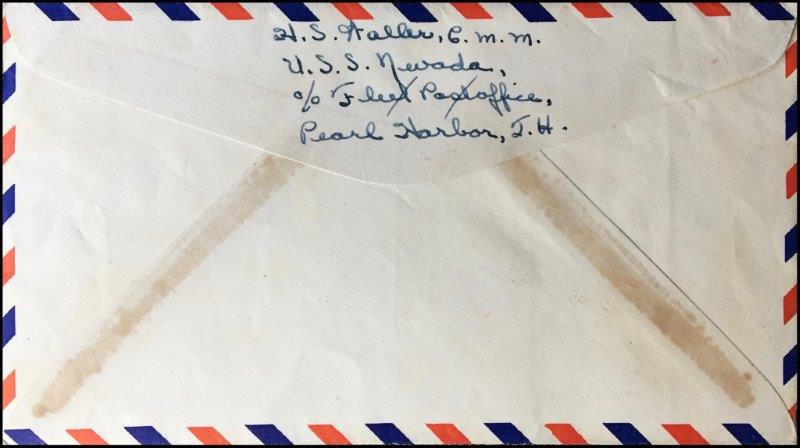 H. S. Haller, C. M. M.
U. S. S. Nevada,
c/o Fleet Postoffice,
Pearl Harbor, T. H.